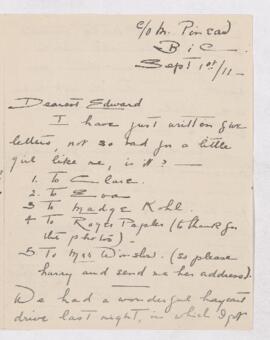 c/o Mr. Pineau
BiC
Sept 1st/11-
Dearest Edward
I have just written five
letters, not so bad for a little
girl like me, is it? —
1. To Clare.
2. To Eva
3 To Madge Kohl.
4 To Royes (to thank for
the photos).
5 To Mrs Winslow. (so please
hurry and send me her address).
We had a wonderful haycart
drive last night, in which I got